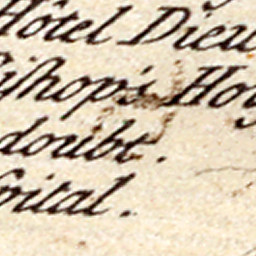 Hôtel Dieu
Bishop's Ho
doubt.
pital.